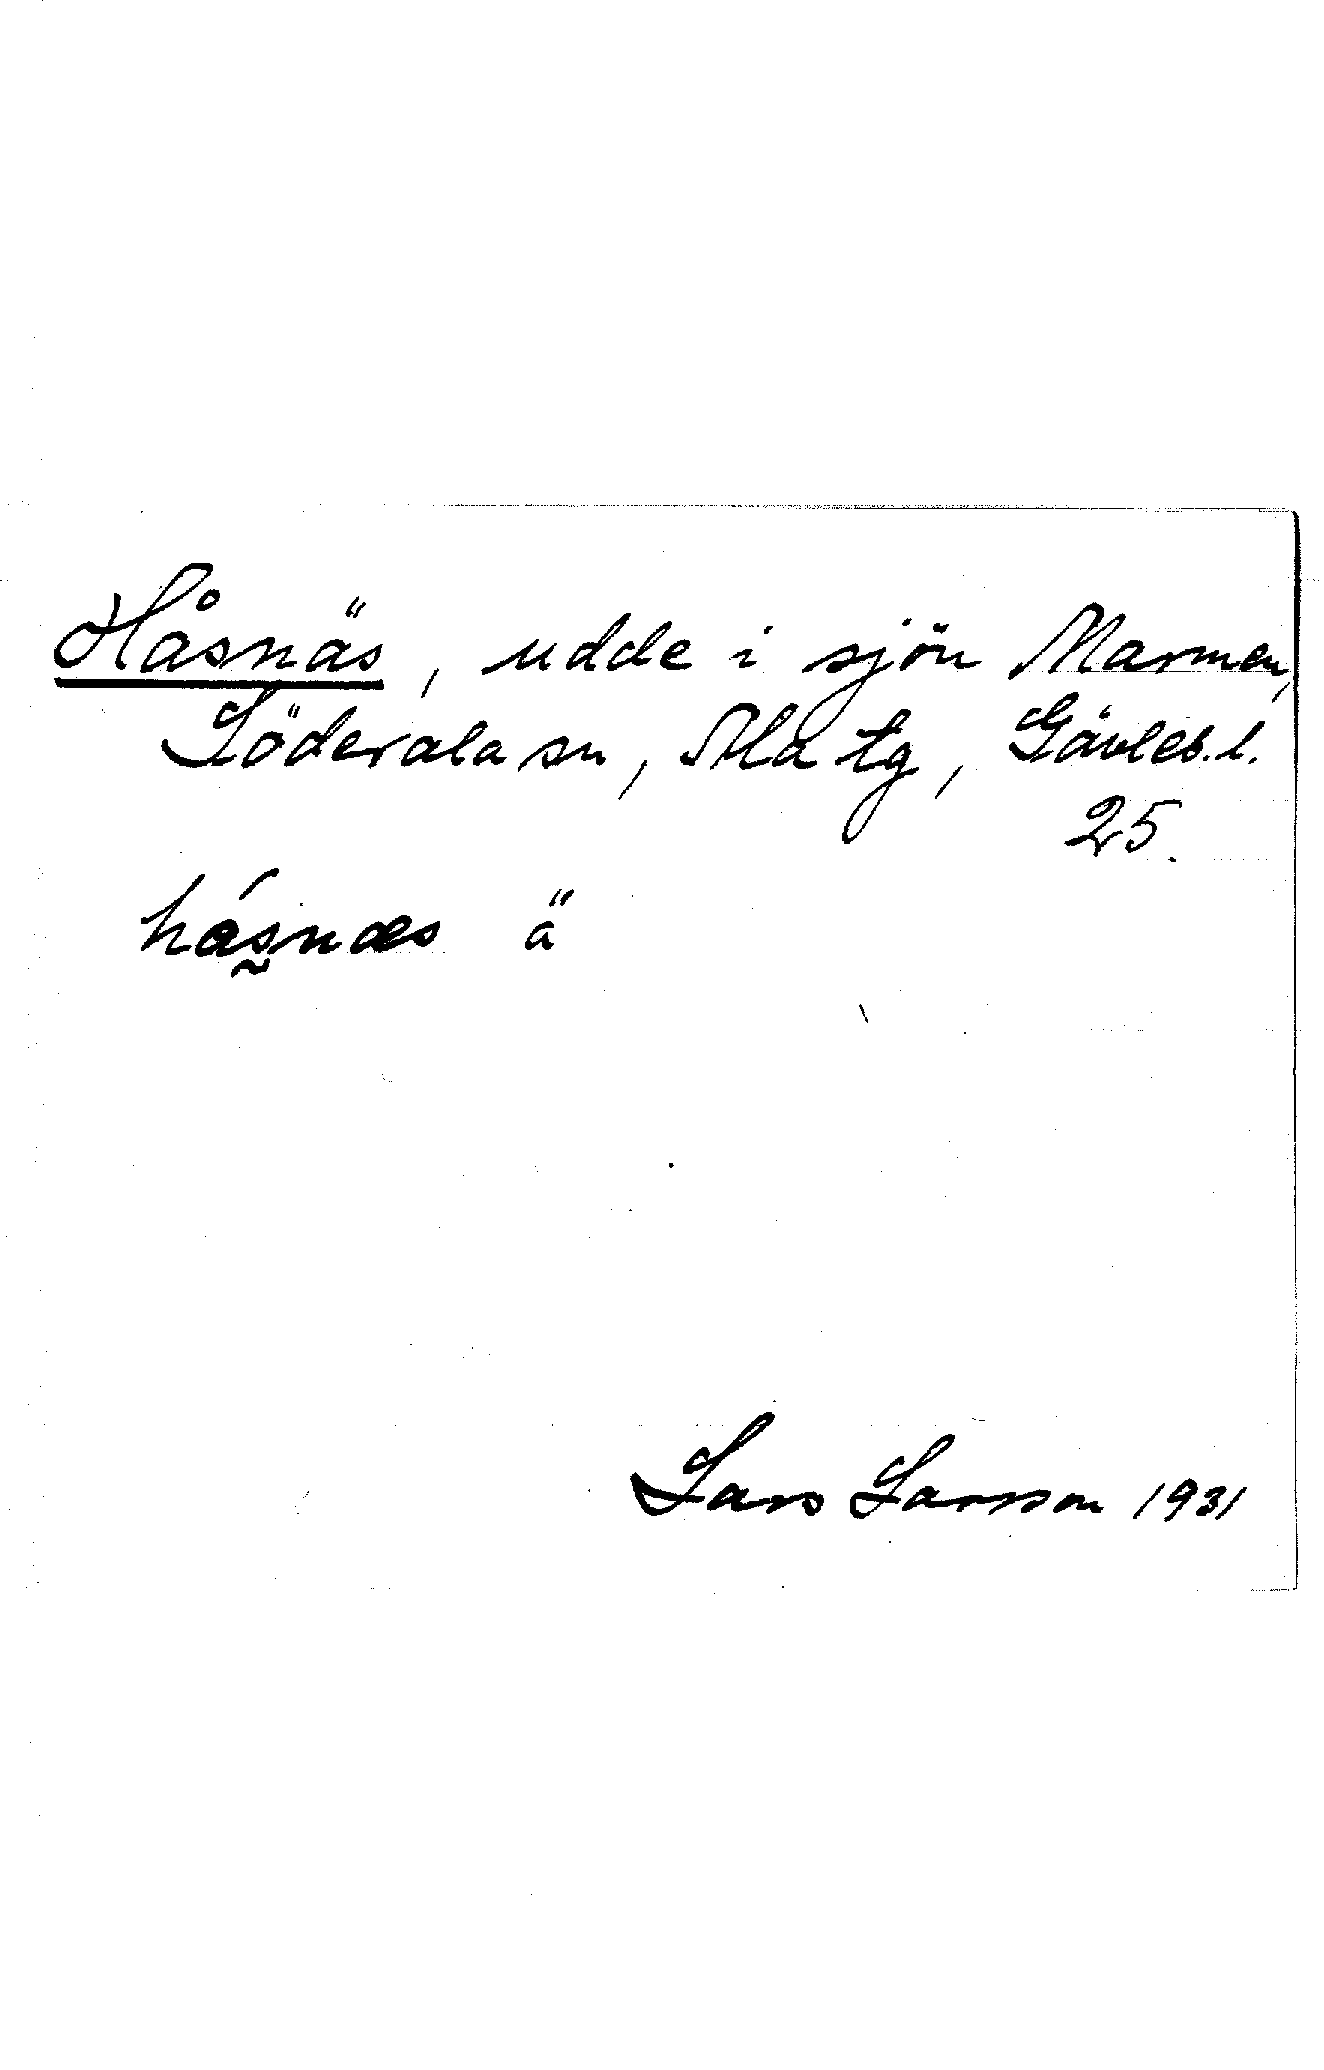 Håsnäs, udde i sjön Marmen,
Söderala sn, Ala tg, Gävleb. l.
25.
hásnæs ä
Lars Larsson 1931